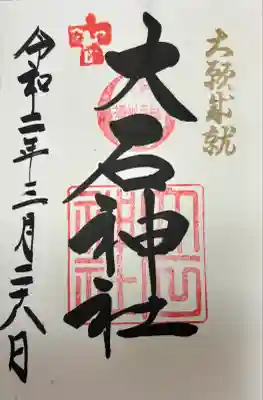 大願成就
大石神社
令和二年三月二六日